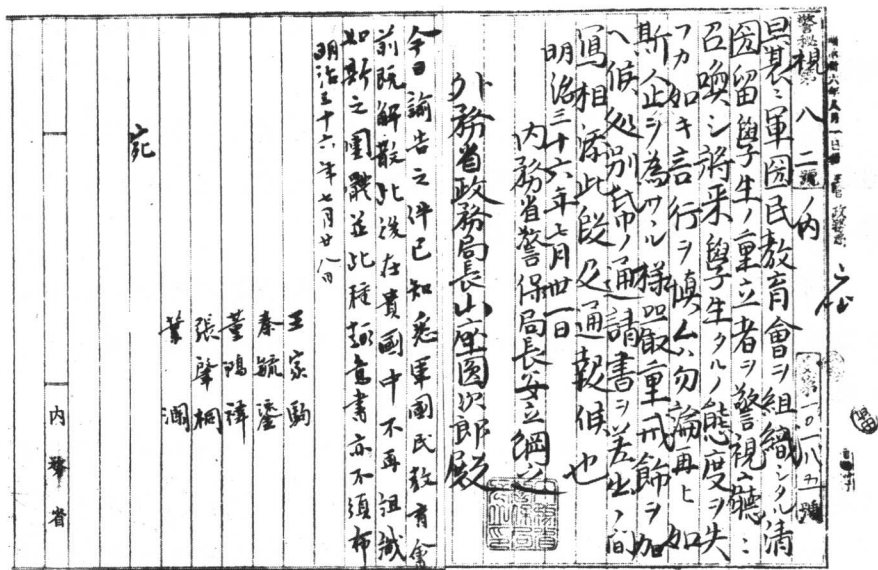 警秘親第八二號ノ内
曩ニ軍国民教育會ヲ組織シタル清
国留學生ノ重立者ヲ警視廳ニ
召喚シ將来學生タルノ態度ヲ失
フカ如キ言行ヲ慎ムハ勿論再ヒ如
斯企ヲ為サヽル様嚴重戒飾ヲ加
ヘ候処別紙ノ通請書ヲ差出候間
寫相添此段及通報候也
明治三十六年七月卅一日
内務省警保局長安立綱之
外務省政務局長山座圓次郎殿
今日諭告之件已知悉軍國民教育會
前既解散此後在貴國中不再組織
如斯之團體並此種類意書亦不須布
明治三十六年七月廿八日
王家駒
秦毓鎏
董鴻禕
張肇桐
葉瀾
宛
内務省